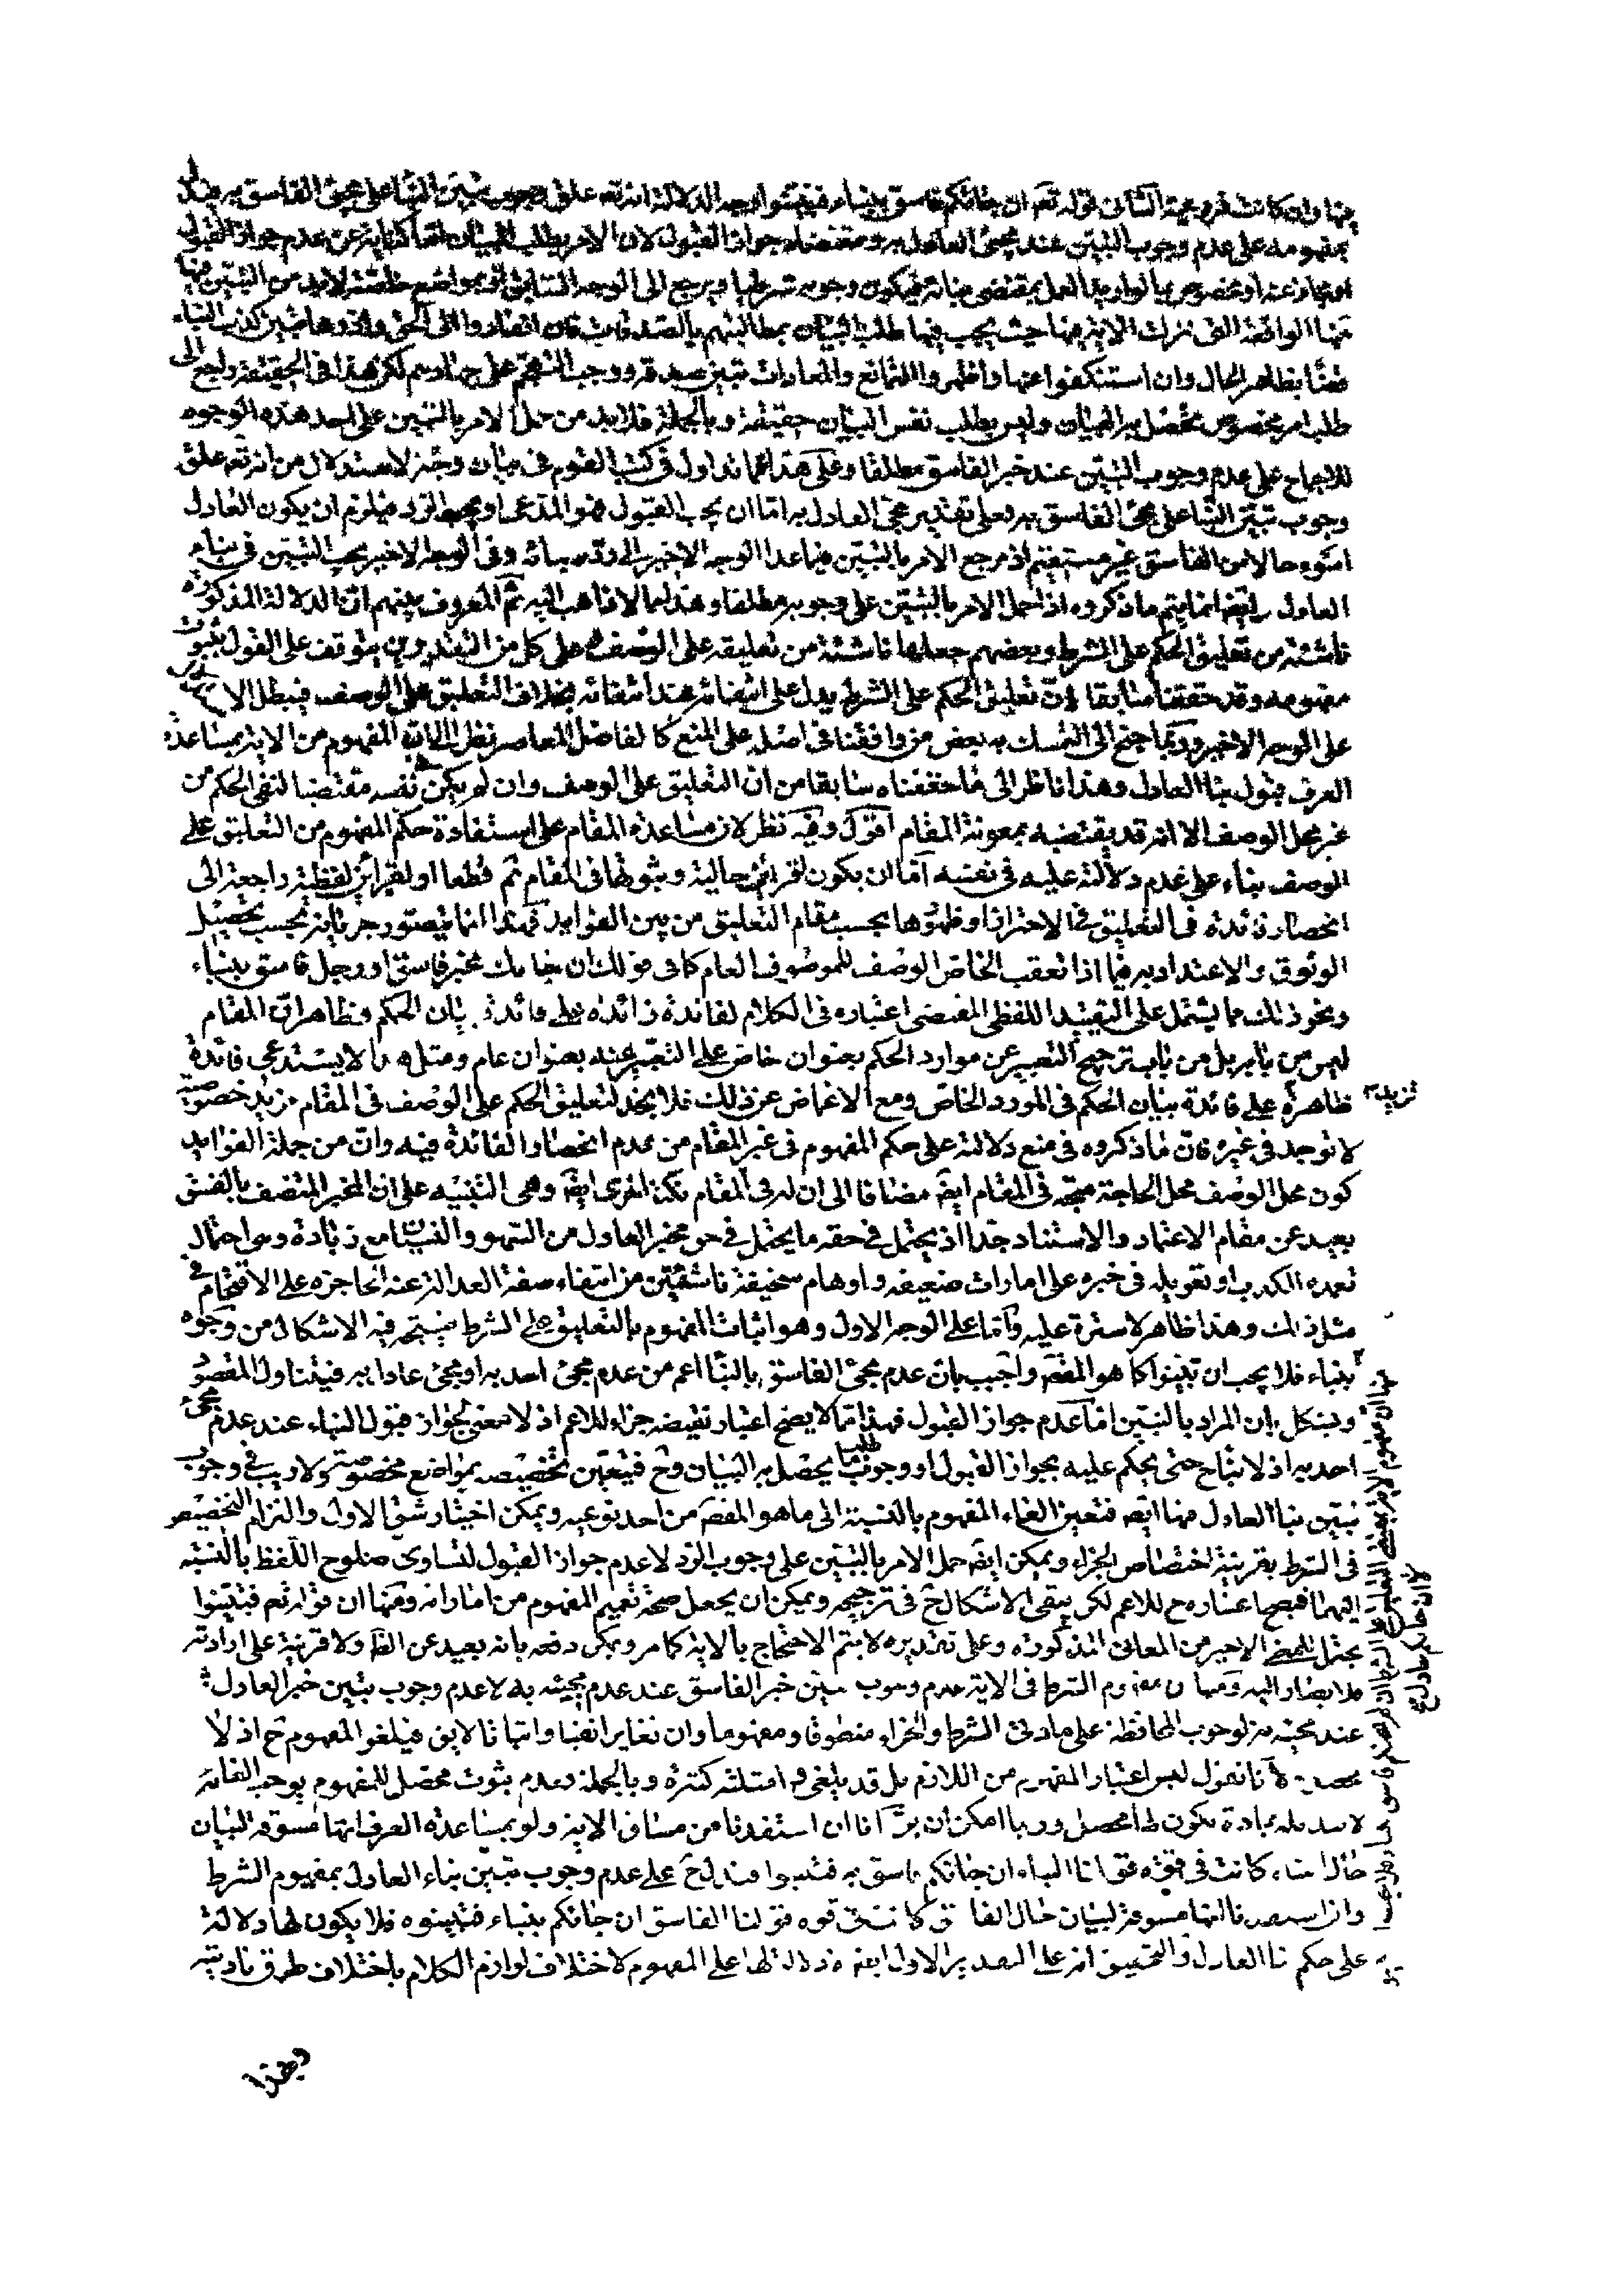 فيها وان كانت فرعية الثانى قوله تعم ان جائكم فاسق بنباء فتبينوا وجه الدلالة انه تعم علق وجوب تبين النبأ على مجئ الفاسق به فيدل
بمفهومه على عدم وجوب التبين عند مجئ العادل به ومقتضاه جواز القبول لان الامر بطلب البيان اما كناية عن عدم جواز القبول
او مجاز عنه او مخصوص بما لو اريد العمل بمقتضى خبائه فيكون وجوبه شرطيا ويرجع الى الوجه السابق او بمواضع خاصة لا بد من التبين فيها
منها الواقعة التى نزلت الاية فيها حيث يجب فيها طلب البيان بمطالبتهم بالصدقات فان انقادوا الى الحق وادوها تبين كذب النباء
ظنا بظاهر الحال وان استنكفوا عنها واظهروا التمانع والمعادات تبين صدقه ووجب التهجم على جهادهم لكن هذا فى الحقيقة راجع الى
طلب امر مخصوص يحصل به البيان وليس بطلب نفس البيان حقيقة وبالجملة فلا بد من حمل الامر بالتبين على احد هذه الوجوه
للاجماع على عدم وجوب التبين عند خبر الفاسق مطلقا وعلى هذا فما تداول فى كتب القوم فى بيان وجه الاستدلال من انه تعم علق
وجوب تبين النبأ على مجئ الفاسق به فعلى تقدير مجئ العادل به اما ان يجب القبول فهو المدعى او يجب الرد فيلزم ان يكون العادل
اسوء حالا من الفاسق غير مستقيم اذ مرجع الامر بالتبين فيما عدا الوجه الاخير الى وقد بيانه وفى الوجه الاخير يجب التبين فى بناء
العادل ايضا انما يتم ما ذكروه اذا حمل الامر بالتبين على وجوبه مطلقا وهذا مما لا ذاهب اليه ثم المعروف بينهم ان الدلالة المذكورة
ناشئة من تعليق الحكم على الشرط وبعضهم جعلها ناشئة من تعليقه على الوصف وعلى كل من التقديرين يتوقف على القول بثبوت
مفهومه وقد حققنا سابقا ان تعليق الحكم على الشرط يدل على انتفائه عند انتفائه بخلاف التعليق على الوصف فيبطل الا
على الوجه الاخير وربما جنح الى التمسك به بعض من وافقنا فى اصله على المنع كالفاضل المعاصر نظرا الى اثبات المفهوم من الاية بمساعدة
العرف قبول نبأ العادل وهذا ناظر الى ما حققناه سابقا من ان التعليق على الوصف وان لم يكن فى نفسه مقتضيا لنفى الحكم من
غير محل الوصف الا انه قد يقتضيه بمعونة المقام اقول وفيه نظر لان مساعدة المقام على استفادة حكم المفهوم من التعليق على
الوصف بناء على عدم دلالته عليه فى نفسه اما ان يكون لقرائن حالية وثبوتها فى المقام ثم قطعا او لقرائن لفظية راجعة الى
انحصار فائدة فى التعليق فى الاحتراز او ظهورها بحسب مقام التعليق من بين الفوائد فهذا انما يتصور جريانه بحسب تحصيل
الوثوق والاعتداد به فيما اذا تعقب الخاص الوصف للموصوف العام كما فى قولك ان جائك مخبر فاسق او رجل فاسق بنباء
ونحو ذلك مما يشتمل على التقييد اللفظى المقتضى اعتباره فى الكلام لفائدة زائدة على فائدة بيان الحكم وظاهر ان المقام
ليس من بابه بل من باب ترجيح التعبير عن موارد الحكم بعنوان خاص على التعبير عنه بعنوان عام ومثله ما لا يستدعى فائدة
ظاهرة على فائدة بيان الحكم فى المورد الخاص ومع الاغماض عن ذلك فلا نجد لتعليق الحكم على الوصف فى المقام مزيد خصوصية
تزيد
لا توجد فى غيره فان ما ذكروه فى منع دلالته على حكم المفهوم فى غير المقام من عدم انحصار الفائدة فيه وان من جملة الفوائد
كون محل الوصف محل الحاجة متجه فى المقام ايضا مضافا الى ان له فى المقام نكتة اخرى ايضا وهى التنبيه على ان المخبر المتصف بالفسق
بعيد عن مقام الاعتماد والاستناد جدا اذ يحتمل فى حقه ما يحتمل فى حق مخبر العادل من السهو والنسيان مع زيادة وهى احتمال
تعمده الكذب او تعويله فى خبره على امارات ضعيفة واوهام سخيفة ناشئتين من انتفاء صفة العدالة عنه الحاجزة على الاقتحام فى
مثل ذلك وهذا ظاهر لا سترة عليه واما على الوجه الاول وهو اثبات المفهوم بالتعليق على الشرط فيتجه فيه الاشكال من وجوه
بنباء فلا يجب ان تبينوا كما هو المقصود واجيب بان عدم مجئ الفاسق بالنبأ اعم من عدم مجئ احد به او مجئ عادل به فيتناول المقصود
ويشكل بان المراد بالتبين اما عدم جواز القبول فهذا مما لا يصح اعتبار نقيضه جزاء للاعم اذ لا معنى لجواز قبول النباء عند عدم مجئ
احد به اذ لا نبأ ح حتى يحكم عليه بجواز القبول او وجوب طلب ما يحصل به البيان وح فيتعين تخصيصه بمواضع مخصوصة ولا ريب فى وجوب
تبين نبأ العادل فيها ايضا فتعين الغاء المفهوم بالنسبة الى ما هو المقصود من احد نوعيه ويمكن اختيار شق الاول والتزام التخصيص
فى الشرط بقرينة اختصاص الجزاء ويمكن ايضا حمل الامر بالتبين على وجوب الرد لا عدم جواز القبول لتساوى صلوح اللفظ بالنسبة
اليهما فيصح اعتباره ح للاعم لكن يبقى الاشكال ح فى ترجيحه ويمكن ان يجعل صحة تعميم المفهوم من اماراته ومنها ان قوله تعم فتبينوا
يحتمل المعنى الاخير من المعانى المذكورة وعلى تقديره لا يتم الاحتجاج بالاية كما مر ويمكن دفعه بانه بعيد عن الظ ولا قرينة على ارادته
فلا يصار اليه ومنها ان مفهوم الشرط فى الاية عدم وجوب تبين خبر الفاسق عند عدم مجيئه به لا عدم وجوب تبين خبر العادل
عند مجيئه به لوجوب المحافظة على مادتى الشرط والجزاء منطوقا ومفهوما وان تغايرا نفيا واثباتا لا يق فيلغو المفهوم ح اذ لا
محصل له لانا نقول ليس اعتبار المفهوم من اللازم بل قد يلغى فى امثلة كثيرة وبالجملة فعدم ثبوت محصل للمفهوم يوجب الغائه
لا تبديله بمادة يكون لها محصل وربما امكن ان يرد انا ان استفدنا من مساق الاية ولو بمساعدة العرف انها مسوقة لبيان
حال النباء كانت فى قوة قولنا النباء ان جائكم فاسق به فتبينوا فيدل ح على عدم وجوب تبين بناء العادل بمفهوم الشرط
وان استفدنا انها مسوقة لبيان حال الفاسق كانت فى قوة قولنا الفاسق ان جائكم بنباء فتبينوه فلا يكون لها دلالة
على حكم نبأ العادل والتحقيق ان على التقدير الاول ايضا دلالتها على المفهوم لاختلاف لوازم الكلام باختلاف طرق تاديته
وهذا